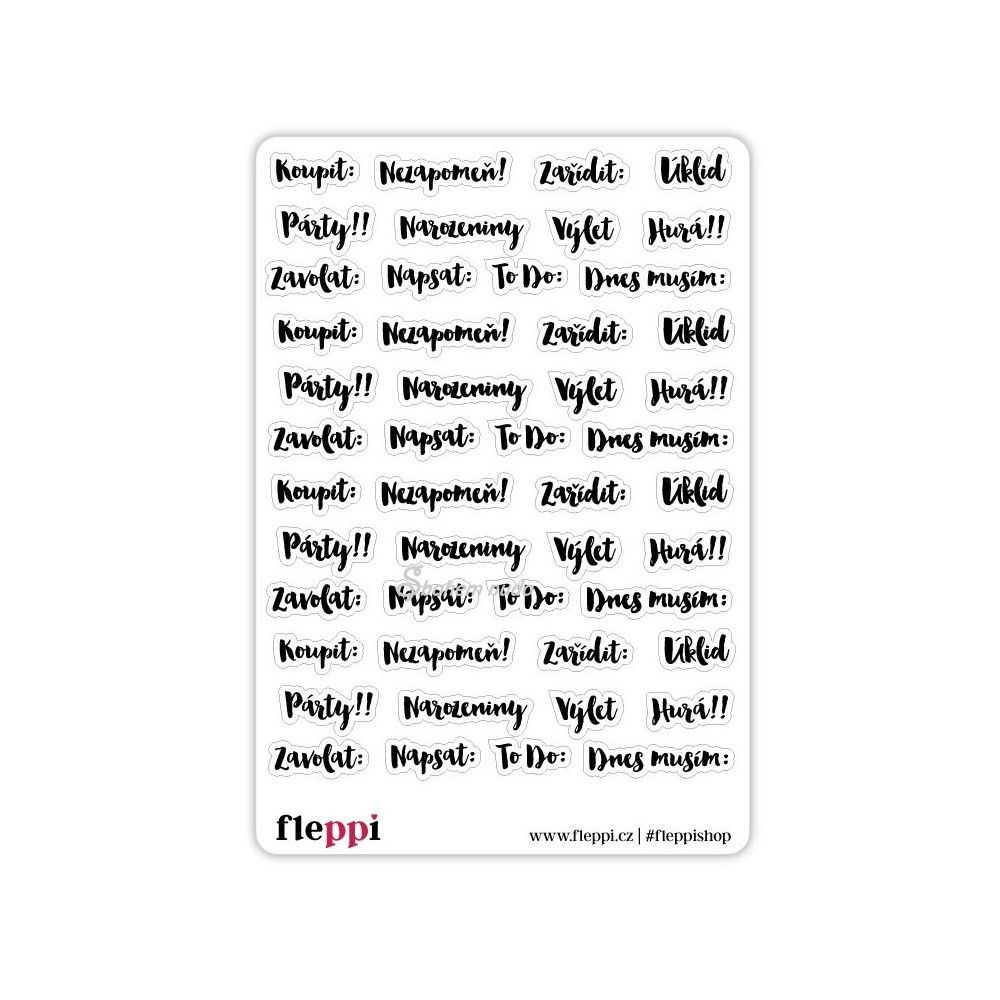 Koupit: Nezapomeň! Zařídit: Úklid
Párty!! Narozeniny Výlet Hurá!!
Zavolat: Napsat: To Do: Dnes musím:
Koupit: Nezapomeň! Zařídit: Úklid
Párty!! Narozeniny Výlet Hurá!!
Zavolat: Napsat: To Do: Dnes musím:
Koupit: Nezapomeň! Zařídit: Úklid
Párty!! Narozeniny Výlet Hurá!!
Sbohem nudo
Zavolat: Napsat: To Do: Dnes musím:
Koupit: Nezapomeň! Zařídit: Úklid
Párty!! Narozeniny Výlet Hurá!!
Zavolat: Napsat: To Do: Dnes musím:
fleppi
www.fleppi.cz | #fleppishop